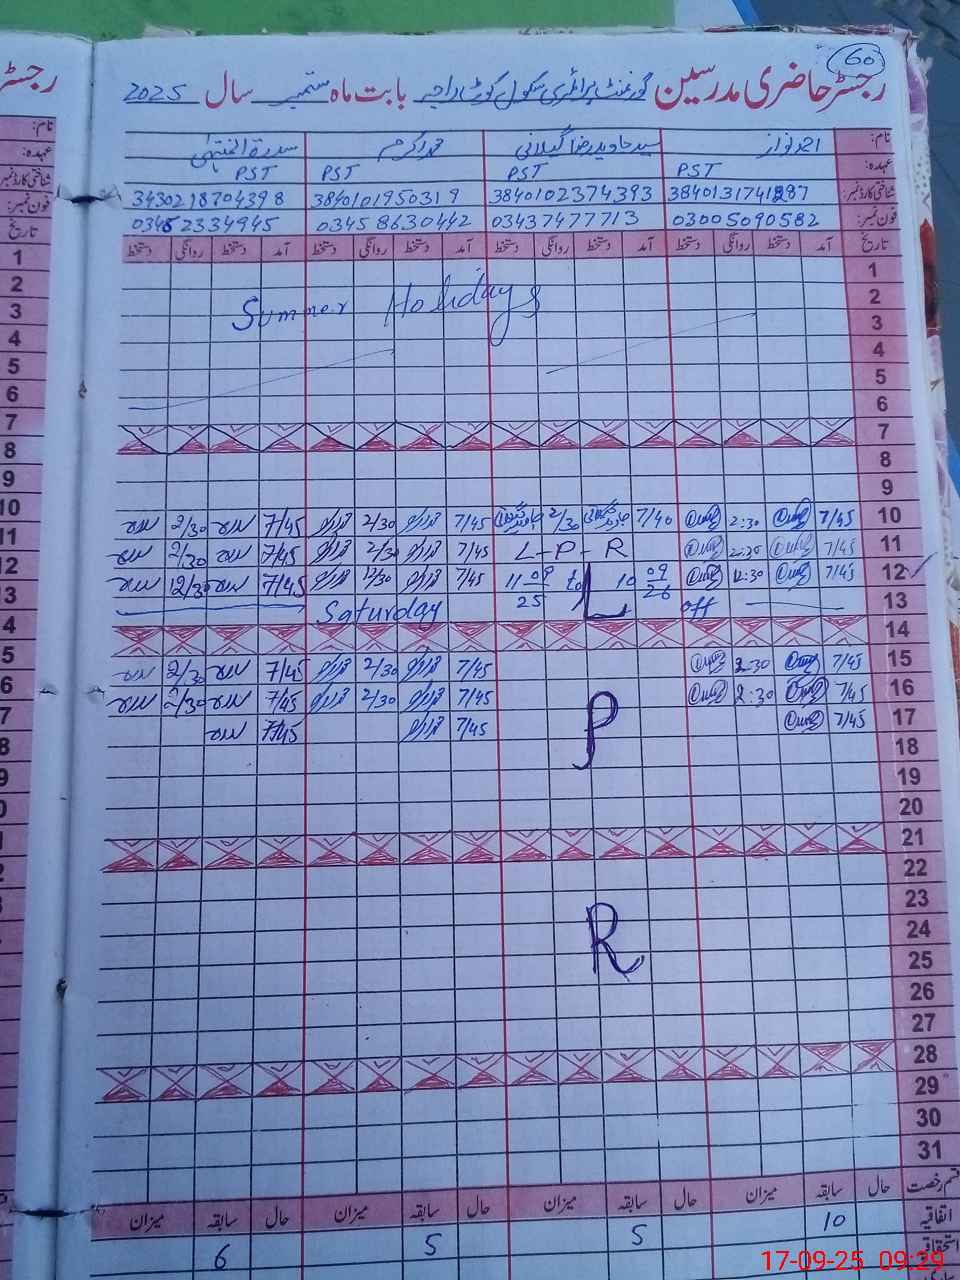 60
رجسٹر حاضری مدرسین گورنمنٹ پرائمری سکول کوٹ راجہ بابت ماہ ستمبر سال 2025
نام: احمد نواز سید جاوید رضا گیلانی محمد اکرم سدرۃ المنتہیٰ
عہدہ: PST PST PST PST
شناختی کارڈ نمبر: 3840131741287 3840102374393 3840101950319 3430218704398
فون نمبر: 03005090582 03437477713 03458630442 03462334945
تاریخ آمد دستخط روانگی دستخط آمد دستخط روانگی دستخط آمد دستخط روانگی دستخط آمد دستخط روانگی دستخط
1
2 Summer Holidays
3
4
5
6
7
8
9
10 7/45 2:30 7/40 2/30 7/45 2/30 7/45 2/30
11 7/45 2:30 L-P-R 7/45 2/30 7/45 2/30
12 7/45 12:30 11 09 25 to 10 09 26 L 7/45 12/30 7/45 12/30
13 Saturday off
14
15 7/45 2:30 7/45 2/30 7/45 2/30
16 7/45 2:30 P 7/45 2/30 7/45 2/30
17 7/45 7/45 7/45
18
19
20
21
22
23
24 R
25
26
27
28
29
30
31
قسم رخصت حال سابقہ میزان حال سابقہ میزان حال سابقہ میزان حال سابقہ میزان
اتفاقیہ 10 5 5 6
استحقاقی
17-09-25 09:29